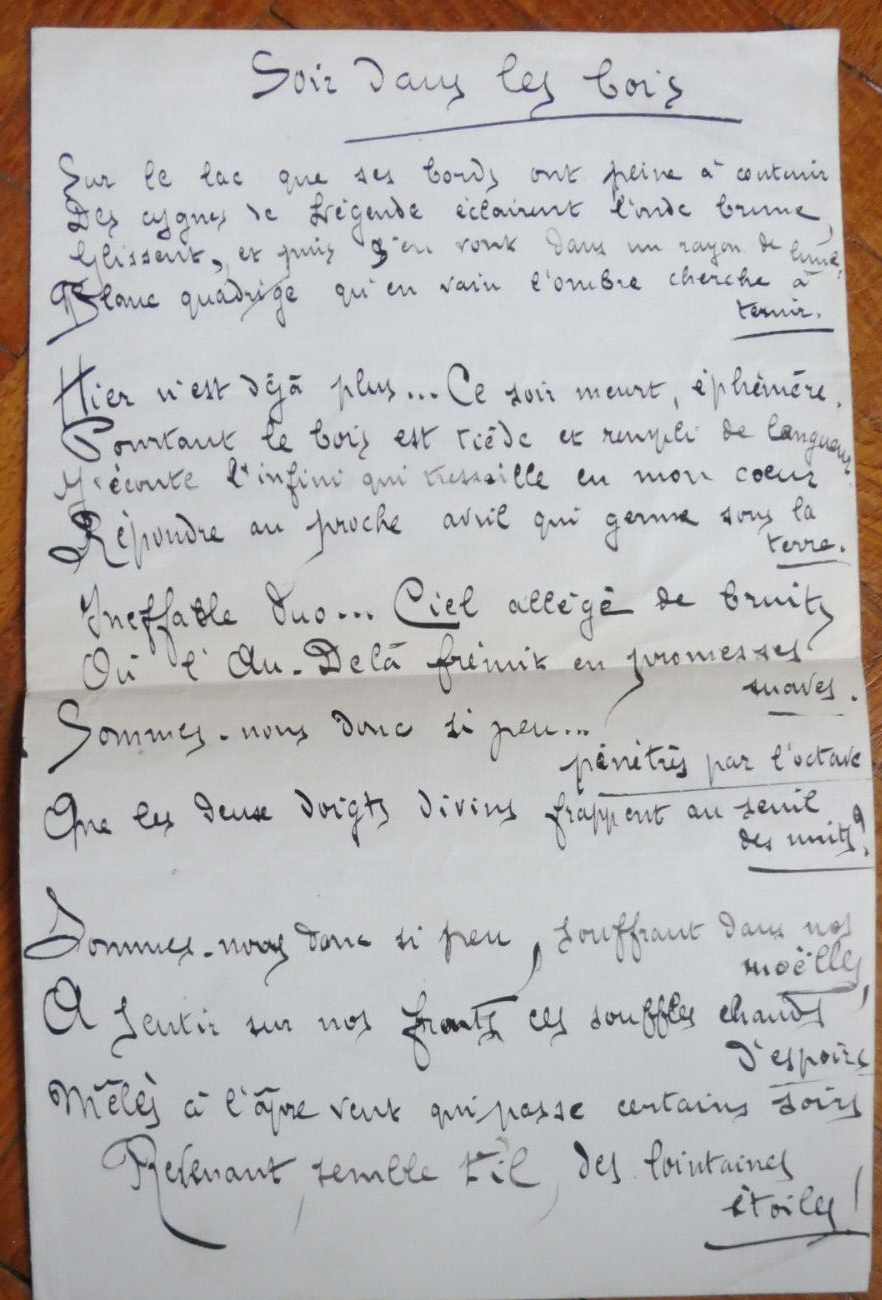 Soir dans les bois
Sur le lac que ses bords ont peine à contenir
Des cygnes de Légende éclairent l'onde brune,
Glissent, et puis s'en vont dans un rayon de lune,
Blanc quadrige qu'en vain l'ombre cherche à
ternir.
Hier n'est déjà plus... Ce soir meurt, éphémère.
Pourtant le bois est tiède et rempli de langueur.
J'écoute l'infini qui tressaille en mon coeur
Répondre au proche avril qui germe sous la
terre.
Ineffable duo... Ciel allégé de bruits
Où l'Au-Delà frémit en promesses
suaves.
Sommes-nous donc si peu...
pénétrés par l'octave
Que les deux doigts divins frappent au seuil
des nuits?
Sommes-nous donc si peu, souffrant dans nos
moëlles,
A sentir sur nos fronts ces souffles chauds
d'espoirs
Mêlés à l'âpre vent qui passe certains soirs
Revenant, semble t'il, des lointaines
étoiles!